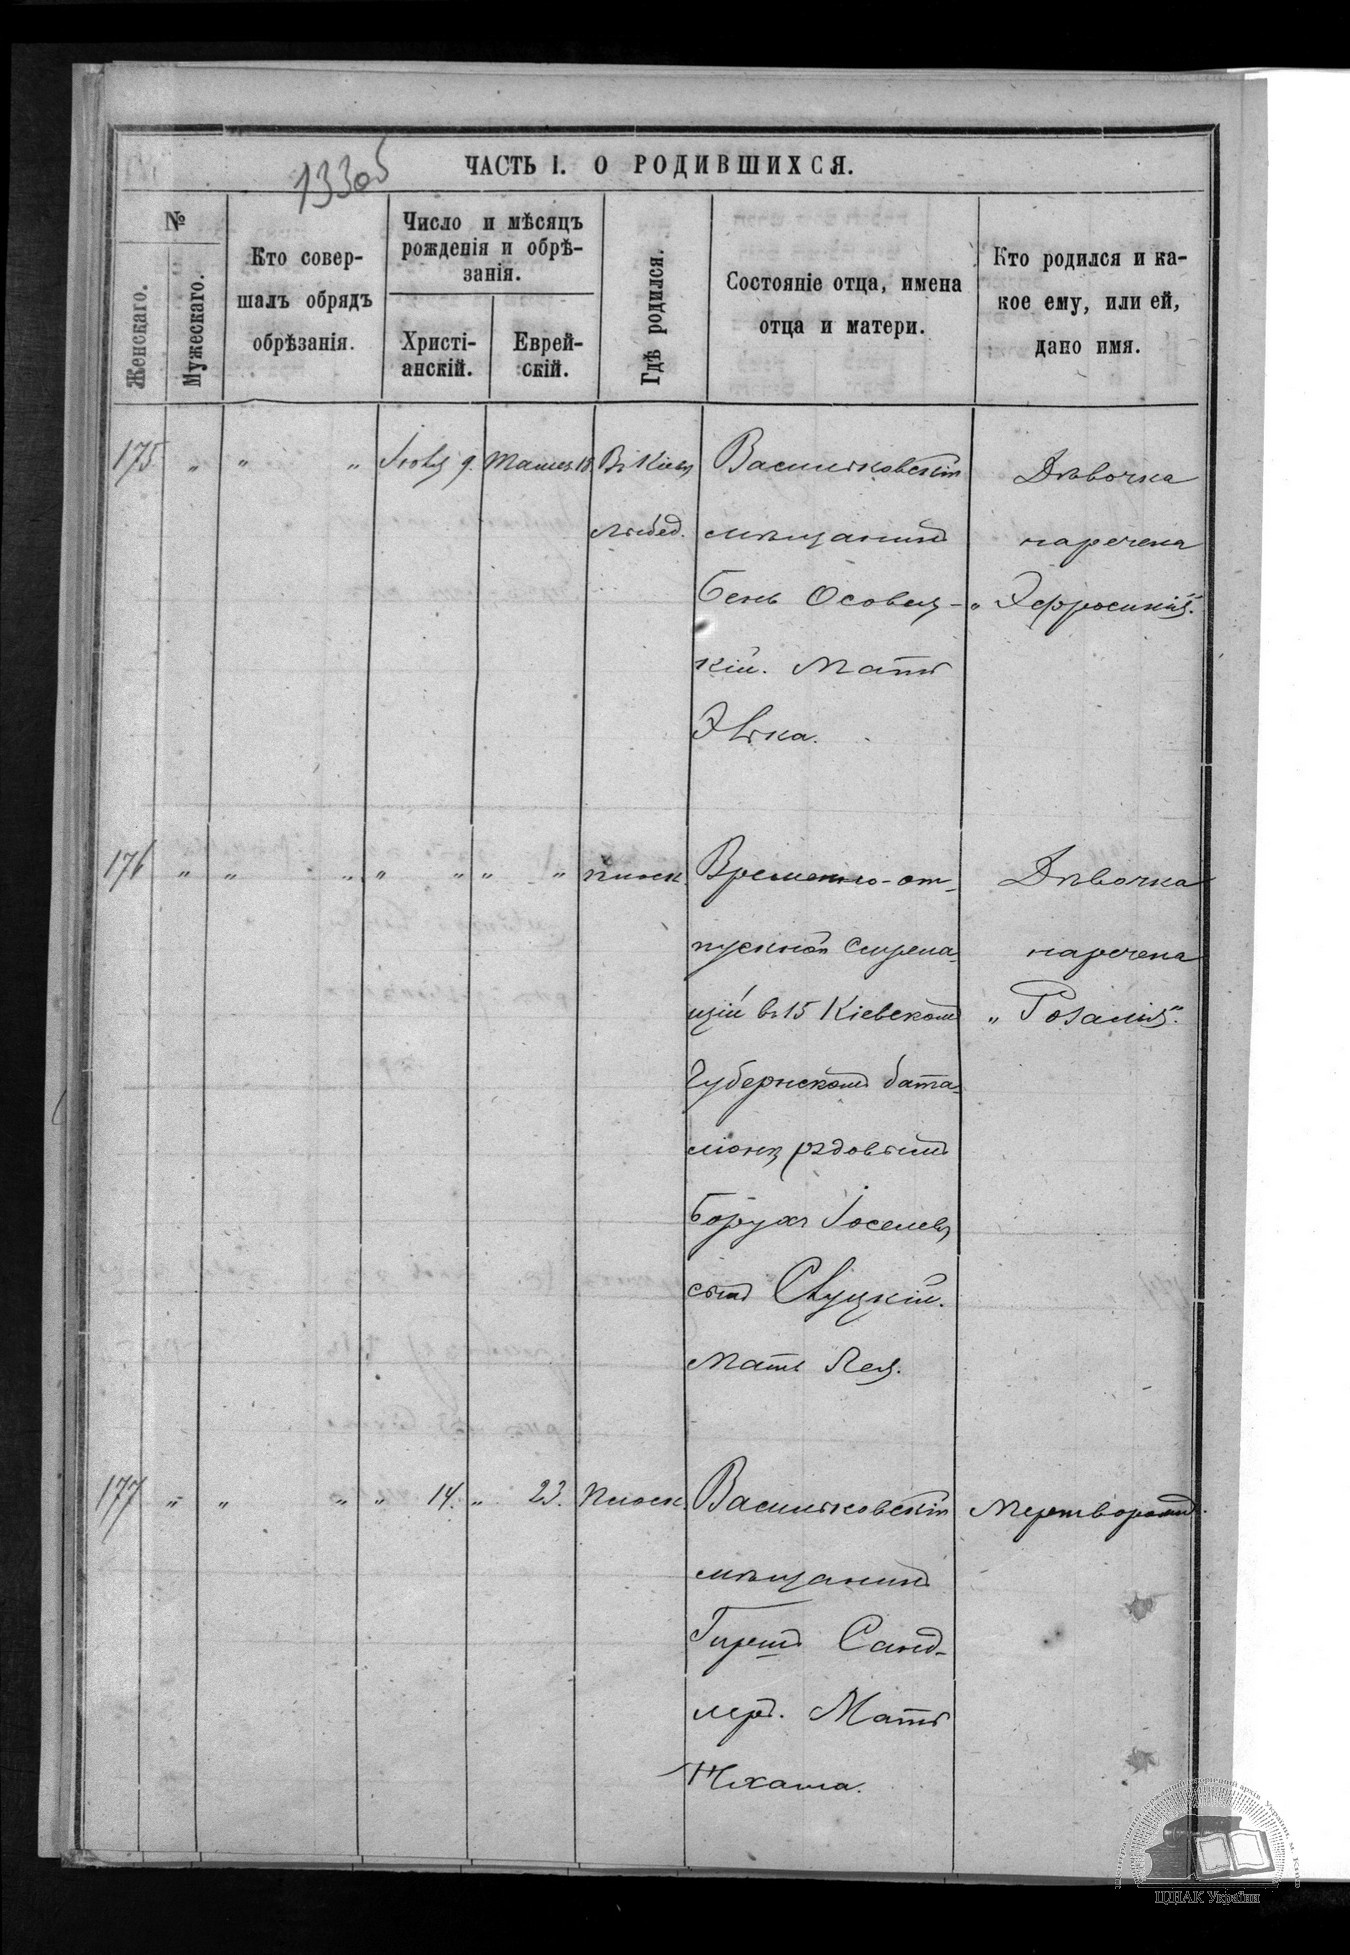 133об
ЧАСТЬ I. О РОДИВШИХСЯ.
№
Женскаго.
Мужескаго.
Кто совер-
шалъ обрядъ
обрѣзанія.
Число и мѣсяцъ
рожденія и обрѣ-
занія.
Христі-
анскій.
Еврей-
скій.
Гдѣ родился.
Состояніе отца, имена
отца и матери.
Кто родился и ка-
кое ему, или ей,
дано имя.
175 „ „ „ Іюля 9. Тамуз 18. Въ Кіевѣ
Лыбед.
Васильковскій
мѣщанинъ
Бень Осовец-
кій. Мать
Эвка.
Дѣвочка
наречена
„Эфросинія".
176 „ „ „ „ „ „ „ плоск.
Временно-от-
пускной
въ 15 Кіевскомъ
Губернскомъ бата-
ліонѣ рядовымъ
Борухъ Іоселевъ
сынъ Слуцкій.
Мать Лея.
Дѣвочка
наречена
„Розалія".
177 „ „ „ „ 14. „ 23. Плоск.
Васильковскій
мѣщанинъ
Гиршъ Санд-
леръ. Мать
Нехама.
Мертворожд.
ЦДІАК України